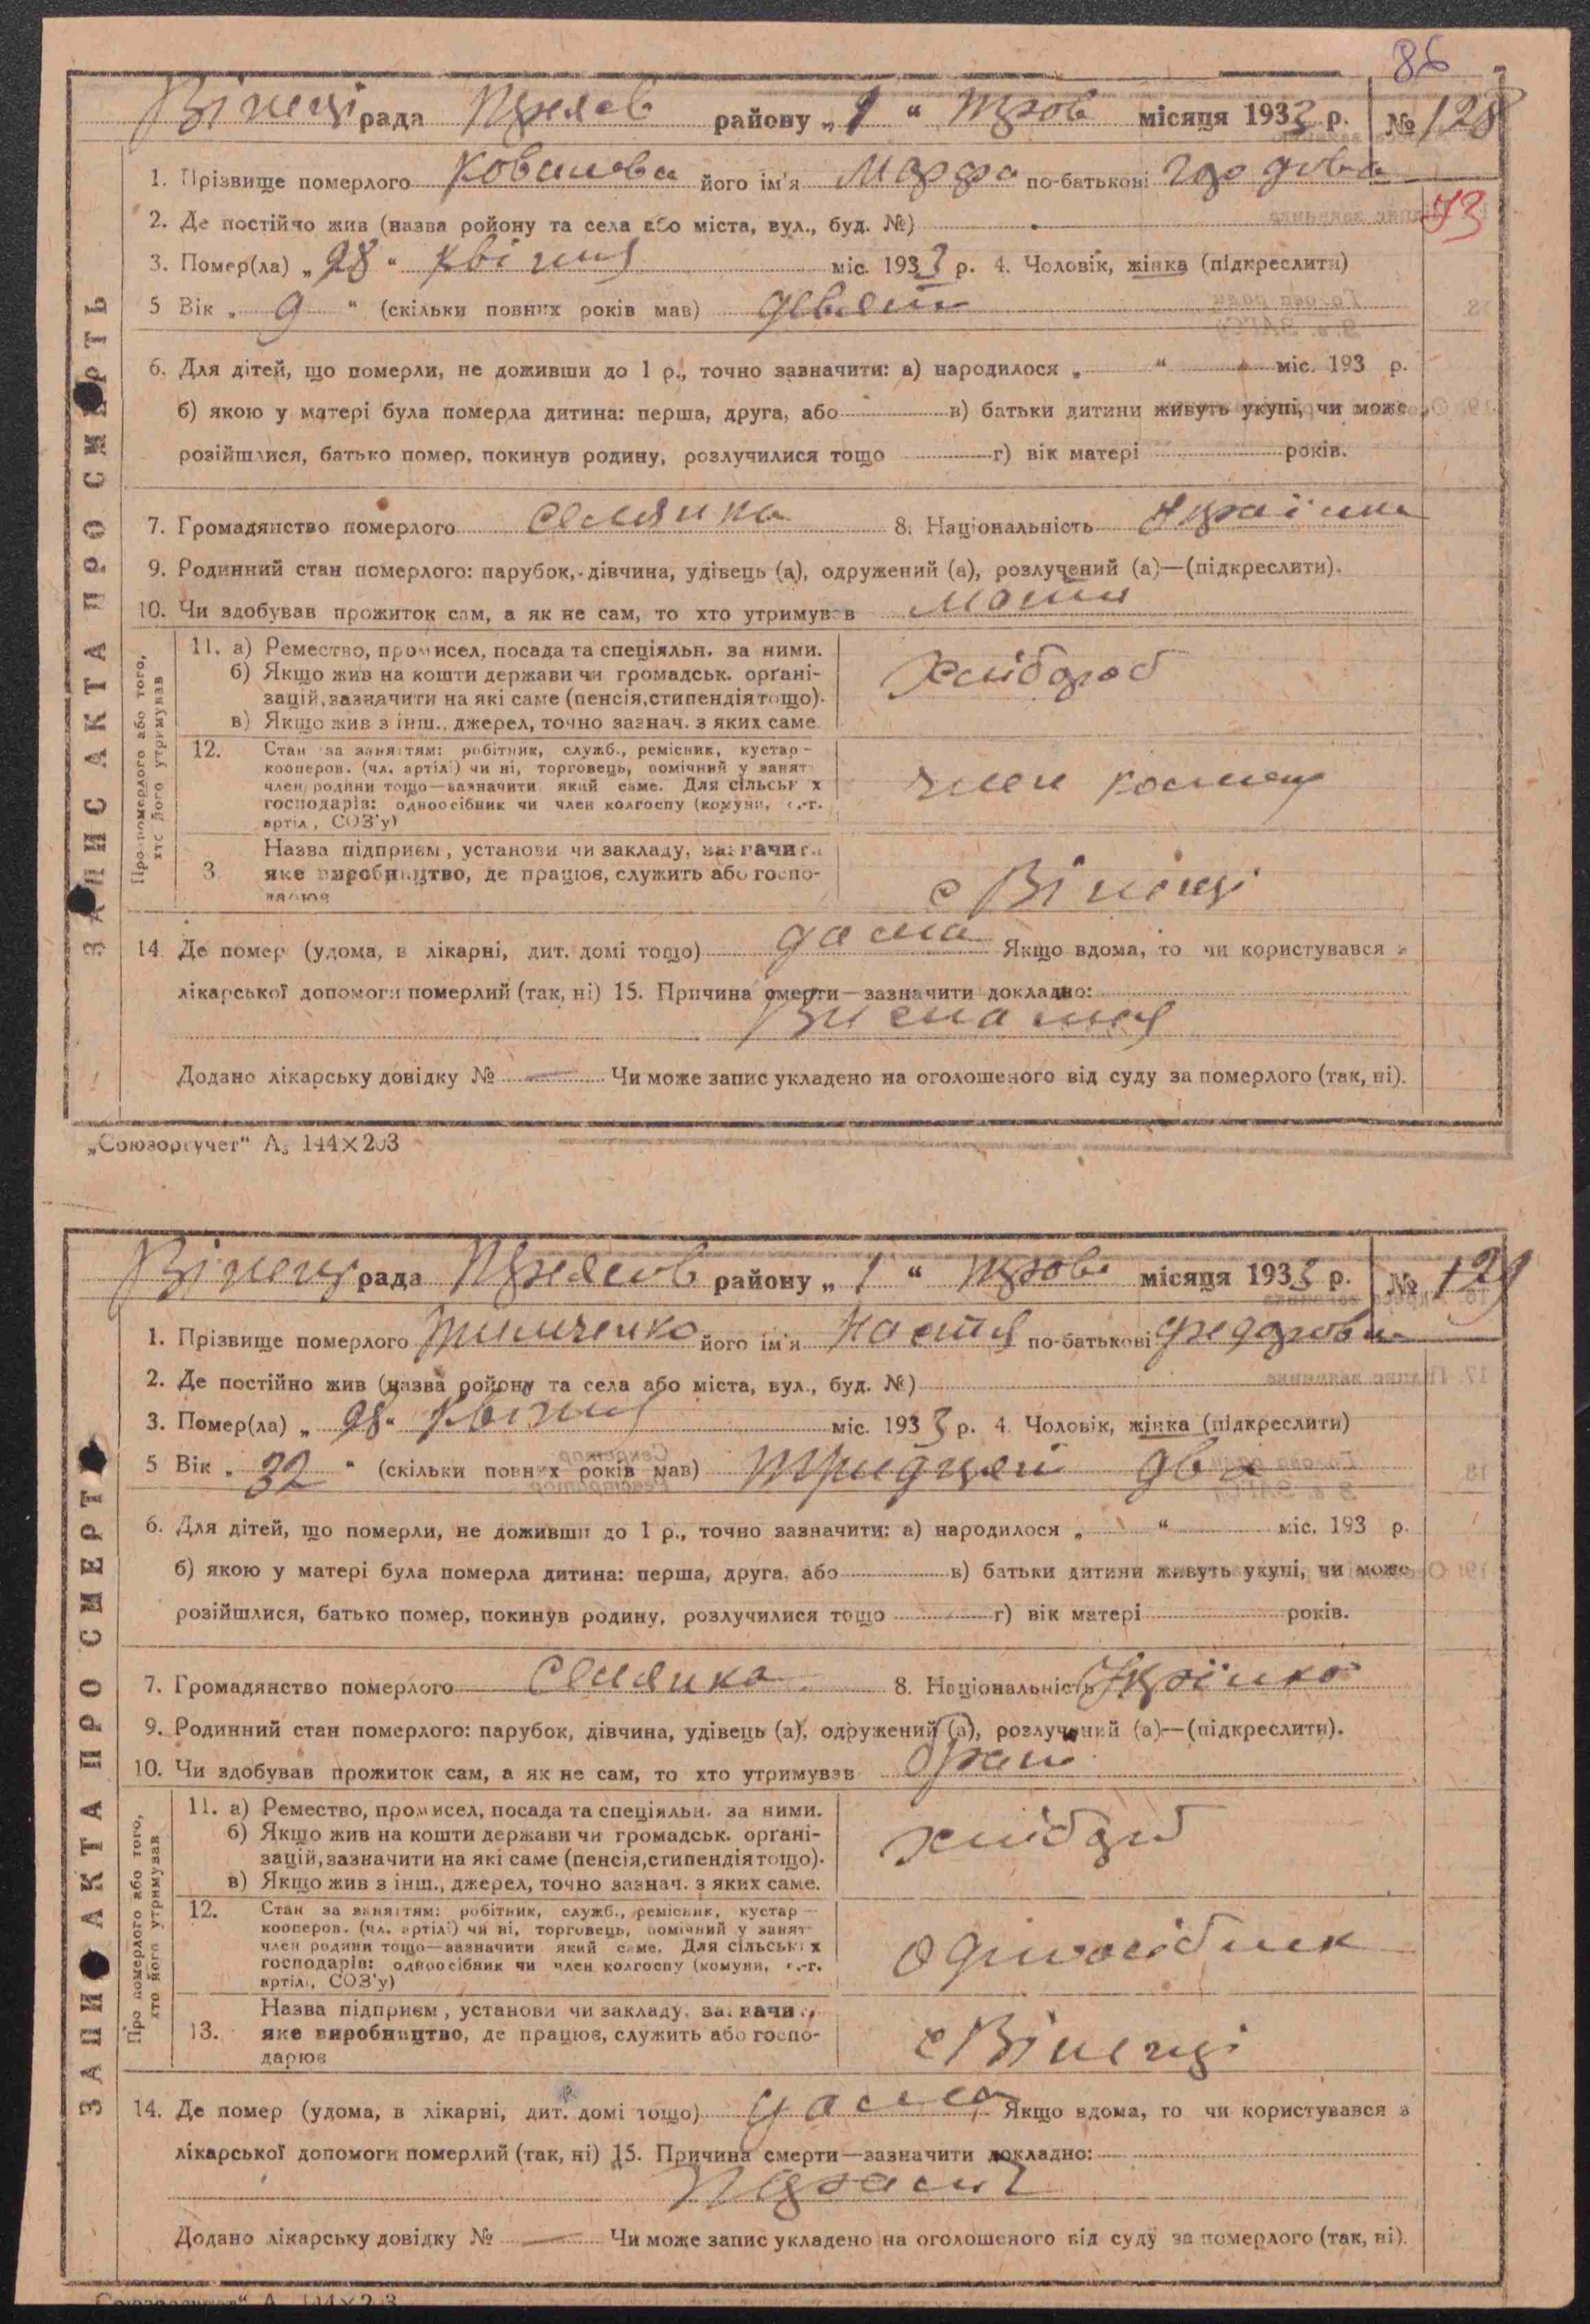 86
рада району „ 1 “ місяця 1933 р. № 128
1. Прізвище померлого Ковалева його ім'я Марфа по-батькові
73
2. Де постійно жив (назва ройону та села або міста, вул., буд. №)
3. Помер(ла) „ 28 “ квітня міс. 1933 р. 4. Чоловік, жінка (підкреслити)
5 Вік „ 9 “ (скільки повних років мав) девять
6. Для дітей, що померли, не доживши до 1 р., точно зазначити: а) народилося „ “ міс. 193 р.
б) якою у матері була померла дитина: перша, друга, або в) батьки дитини живуть укупі, чи може
розійшлися, батько помер, покинув родину, розлучилися тощо г) вік матері років.
7. Громадянство померлого селянка 8. Національність Українка
9. Родинний стан померлого: парубок, дівчина, удівець (а), одружений (а), розлучений (а)—(підкреслити).
10. Чи здобував прожиток сам, а як не сам, то хто утримував мати
ЗАПИС АКТА ПРО СМЕРТЬ
Про померлого або того, хто його утримував
11. а) Ремество, промисел, посада та спеціяльн. за ними.
б) Якщо жив на кошти держави чи громадськ. орґані-
зацій, зазначити на які саме (пенсія, стипендія тощо).
в) Якщо жив з інш., джерел, точно зазнач. з яких саме.
хлібороб
12. Стан за заняттям: робітник, служб., ремісник, кустар —
кооперов. (чл. артілі) чи ні, торговець, помічний у занят
член родини тощо—зазначити який саме. Для сільських
господарів: одноосібник чи член колгоспу (комуни, с.-г.
артіл, СОЗ'у)
член
3. Назва підприєм, установи чи закладу, зазначити
яке виробництво, де працює, служить або госпо-
дарює
с
14. Де помер (удома, в лікарні, дит. домі тощо) дома Якщо вдома, то чи користувався з
лікарської допомоги померлий (так, ні) 15. Причина смерти—зазначити докладно:
Додано лікарську довідку № — Чи може запис укладено на оголошеного від суду за померлого (так, ні).
„Союзоргучет“ А₅ 144×203
рада району „ 1 “ місяця 1933 р. № 129
1. Прізвище померлого його ім'я Настя по-батькові Федоровна
2. Де постійно жив (назва ройону та села або міста, вул., буд. №)
3. Помер(ла) „ 28 “ квітня міс. 1933 р. 4. Чоловік, жінка (підкреслити)
5 Вік „ 32 “ (скільки повних років мав) тридцять два
6. Для дітей, що померли, не доживши до 1 р., точно зазначити: а) народилося „ “ міс. 193 р.
б) якою у матері була померла дитина: перша, друга, або в) батьки дитини живуть укупі, чи може
розійшлися, батько помер, покинув родину, розлучилися тощо г) вік матері років.
7. Громадянство померлого селянка 8. Національність Українка
9. Родинний стан померлого: парубок, дівчина, удівець (а), одружений (а), розлучений (а)—(підкреслити).
10. Чи здобував прожиток сам, а як не сам, то хто утримував
ЗАПИС АКТА ПРО СМЕРТЬ
Про померлого або того, хто його утримував
11. а) Ремество, промисел, посада та спеціяльн. за ними.
б) Якщо жив на кошти держави чи громадськ. орґані-
зацій, зазначити на які саме (пенсія, стипендія тощо).
в) Якщо жив з інш., джерел, точно зазнач. з яких саме.
хлібороб
12. Стан за заняттям: робітник, служб., ремісник, кустар —
кооперов. (чл. артілі) чи ні, торговець, помічний у занят
член родини тощо—зазначити який саме. Для сільських
господарів: одноосібник чи член колгоспу (комуни, с.-г.
артіл, СОЗ'у)
одноосібник
13. Назва підприєм, установи чи закладу, зазначи
яке виробництво, де працює, служить або госпо-
дарює
с
14. Де помер (удома, в лікарні, дит. домі тощо) Якщо вдома, то чи користувався з
лікарської допомоги померлий (так, ні) 15. Причина смерти—зазначити докладно:
Додано лікарську довідку № — Чи може запис укладено на оголошеного від суду за померлого (так, ні).
„Союзоргучет“ А 144×203